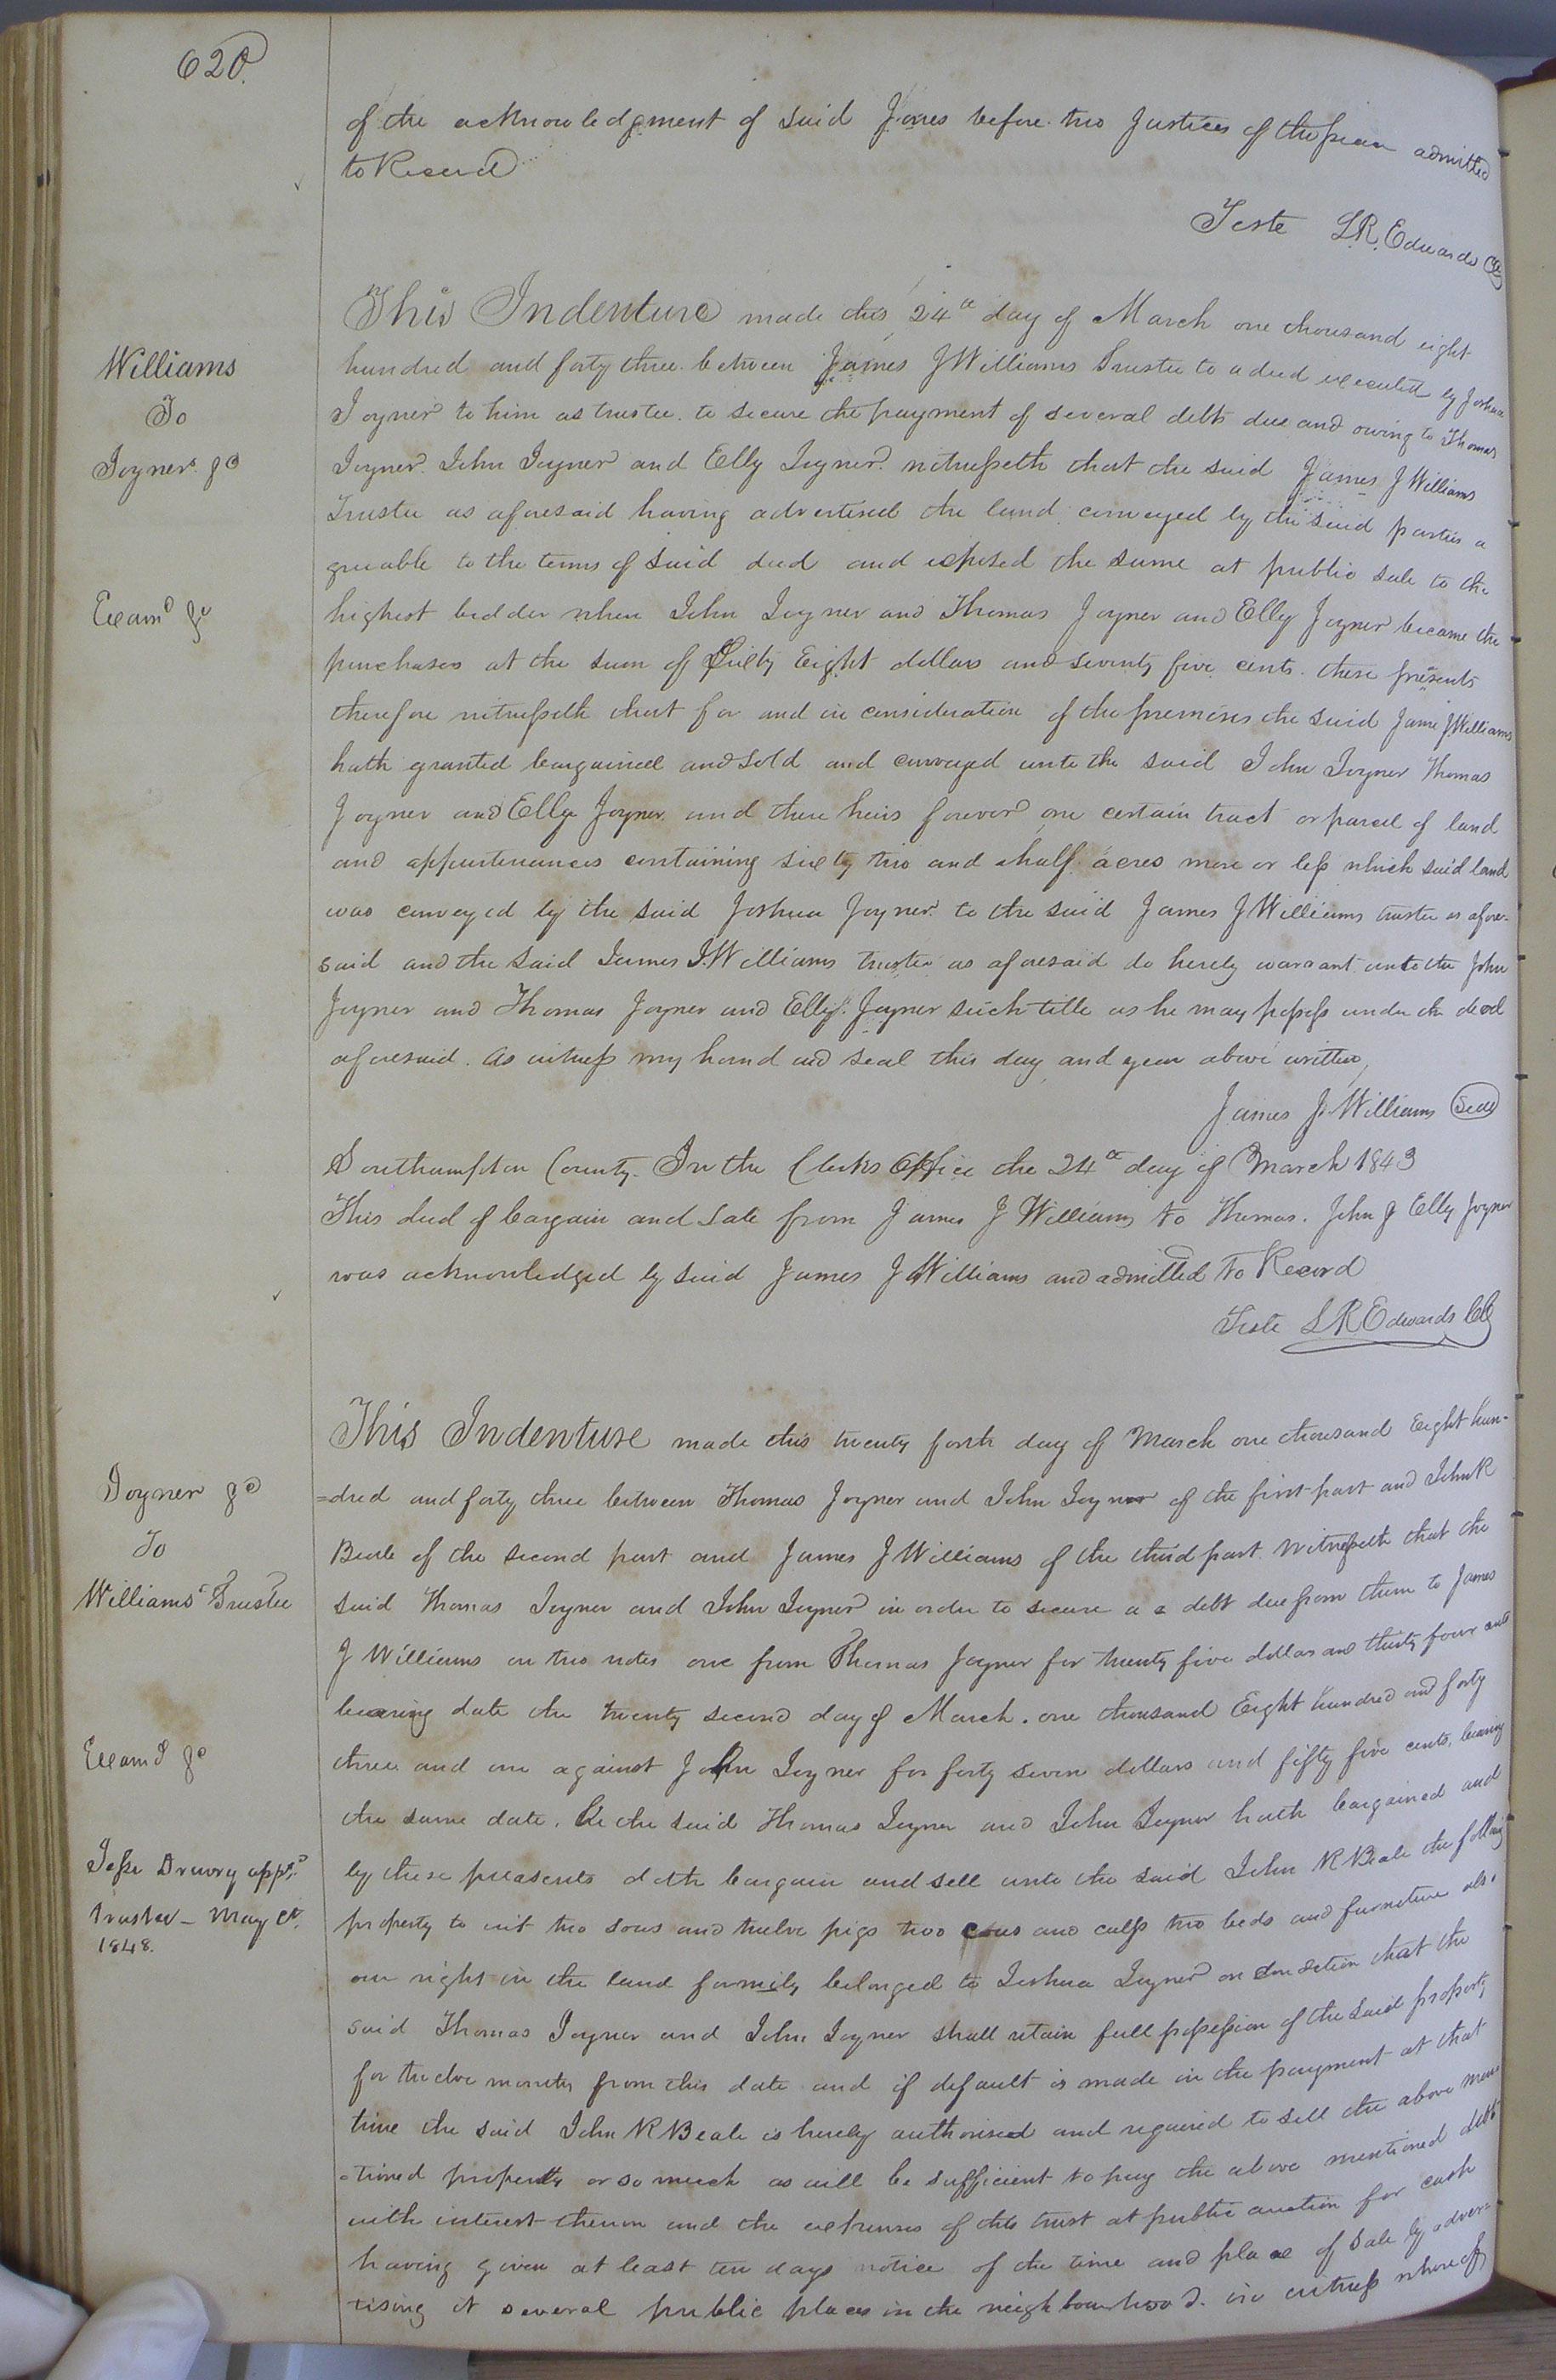 620.
of the acknowledgment of said Jones before two Justices of the peace admitted
to Record
Teste L.R. Edwards Clk
Williams
To
Joyners &c
Exam^d &c
This Indenture made this 24^th day of March one thousand eight
hundred and forty three between James J Williams Trustee to a deed executed by Joshua
Joyner to him as trustee to secure the payment of several debts due and owing to Thomas
Joyner John Joyner and Elly Joyner witnesseth that the said James J Williams
Trustee as aforesaid having advertised the land conveyed by the said parties a
greeable to the terms of said deed and exposed the same at public sale to the
highest bidder when John Joyner and Thomas Joyner and Elly Joyner became the
purchasers at the sum of Eight dollars and seventy five cents. these presents
therefore witnesseth that for and in consideration of the premises the said Jame J Williams
hath granted bargained and sold and conveyed unto the said John Joyner Thomas
Joyner and Elly Joyner and there heirs forever one certain tract or parcel of land
and appurtenances containing sixty two and a half acres more or less which said land
was conveyed by the said Joshua Joyner to the said James J Williams trustee as afore-
said and the said James J. Williams trustee as aforesaid do hereby warrant unto the John
Joyner and Thomas Joyner and Elly Joyner such title as he may possess under the deed
aforesaid. As witness my hand and seal this day and year above written,
James J. Williams Seal
Southampton County. In the Clerks Office the 24^th day of March 1843
This deed of bargain and sale from James J Williams to Thomas. John & Elly Joyner
was acknowledged by said James J Williams and admitted to Record
Teste L R Edwards Clk
Joyner &c
To
Williams' Trustee
Exam^d &c
Jesse Drewry app^td
trustee - May Ct.
1848.
This Indenture made this twenty forth day of March one thousand Eight hun-
=dred and forty three between Thomas Joyner and John Joyner of the first part and John R
Beale of the second part and James J Williams of the third part. Witnesseth that the
said Thomas Joyner and John Joyner in order to secure a a debt due from them to James
J Williams on two notes one from Thomas Joyner for twenty five dollars and thirty four cents
bearing date the twenty second day of March. one thousand Eight hundred and forty
three and one against John Joyner for forty seven dollars and fifty five cents, bearing
the same date. the said Thomas Joyner and John Joyner hath bargained and
by these preasents doth bargain and sell unto the said John R Beale the following
property to wit two sows and twelve pigs two cows and calfs two beds and furneture also
our right in the land formily belonged to Joshua Joyner on condition that the
said Thomas Joyner and John Joyner shall retain full possession of the said property
for twelve months from this date and if default is made in the payment at that
time the said John R Beale is hereby authorised and required to sell the above men
-tioned property or so much as will be sufficient to pay the above mentioned debt
with interest thereon and the expenses of this trust at public auction for cash
having given at least ten days notice of the time and place of sale by adver-
tising at several public places in the neighbourhood. in witness whereof